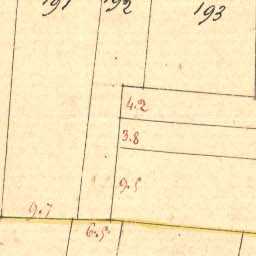 191 192 193
4.2
3.8
9.5
9.7
6.5